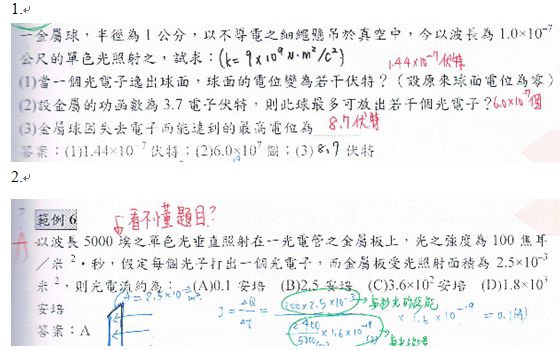 1.
一金屬球，半徑為1公分，以不導電之細繩懸吊於真空中，今以波長為1.0×10⁻⁷
公尺的單色光照射之，試求：(k= 9×10⁹ N·m²/C²)
1.44×10⁻⁷伏特
(1)當一個光電子逸出球面，球面的電位變為若干伏特？（設原來球面電位為零）
(2)設金屬的功函數為3.7電子伏特，則此球最多可放出若干個光電子？6.0×10⁷個
(3)金屬球因失去電子而能達到的最高電位為 8.7伏特
答案：(1)1.44×10⁻⁷伏特；(2)6.0×10⁷個；(3) 8.7 伏特
2.
範例6 看不懂題目?
A 以波長5000埃之單色光垂直照射在一光電管之金屬板上，光之強度為100焦耳
／米²·秒，假定每個光子打出一個光電子，而金屬板受光照射面積為2.5×10⁻³
米²，則光電流約為：(A)0.1安培 (B)2.5安培 (C)3.6×10²安培 (D)1.8×10³
安培
A=2.5×10⁻³m²
I = ΔQ/Δt = 100×2.5×10⁻³ ×1.6×10⁻¹⁹ = 0.1(A)
答案：A
12400/5000 ×1.6×10⁻¹⁹